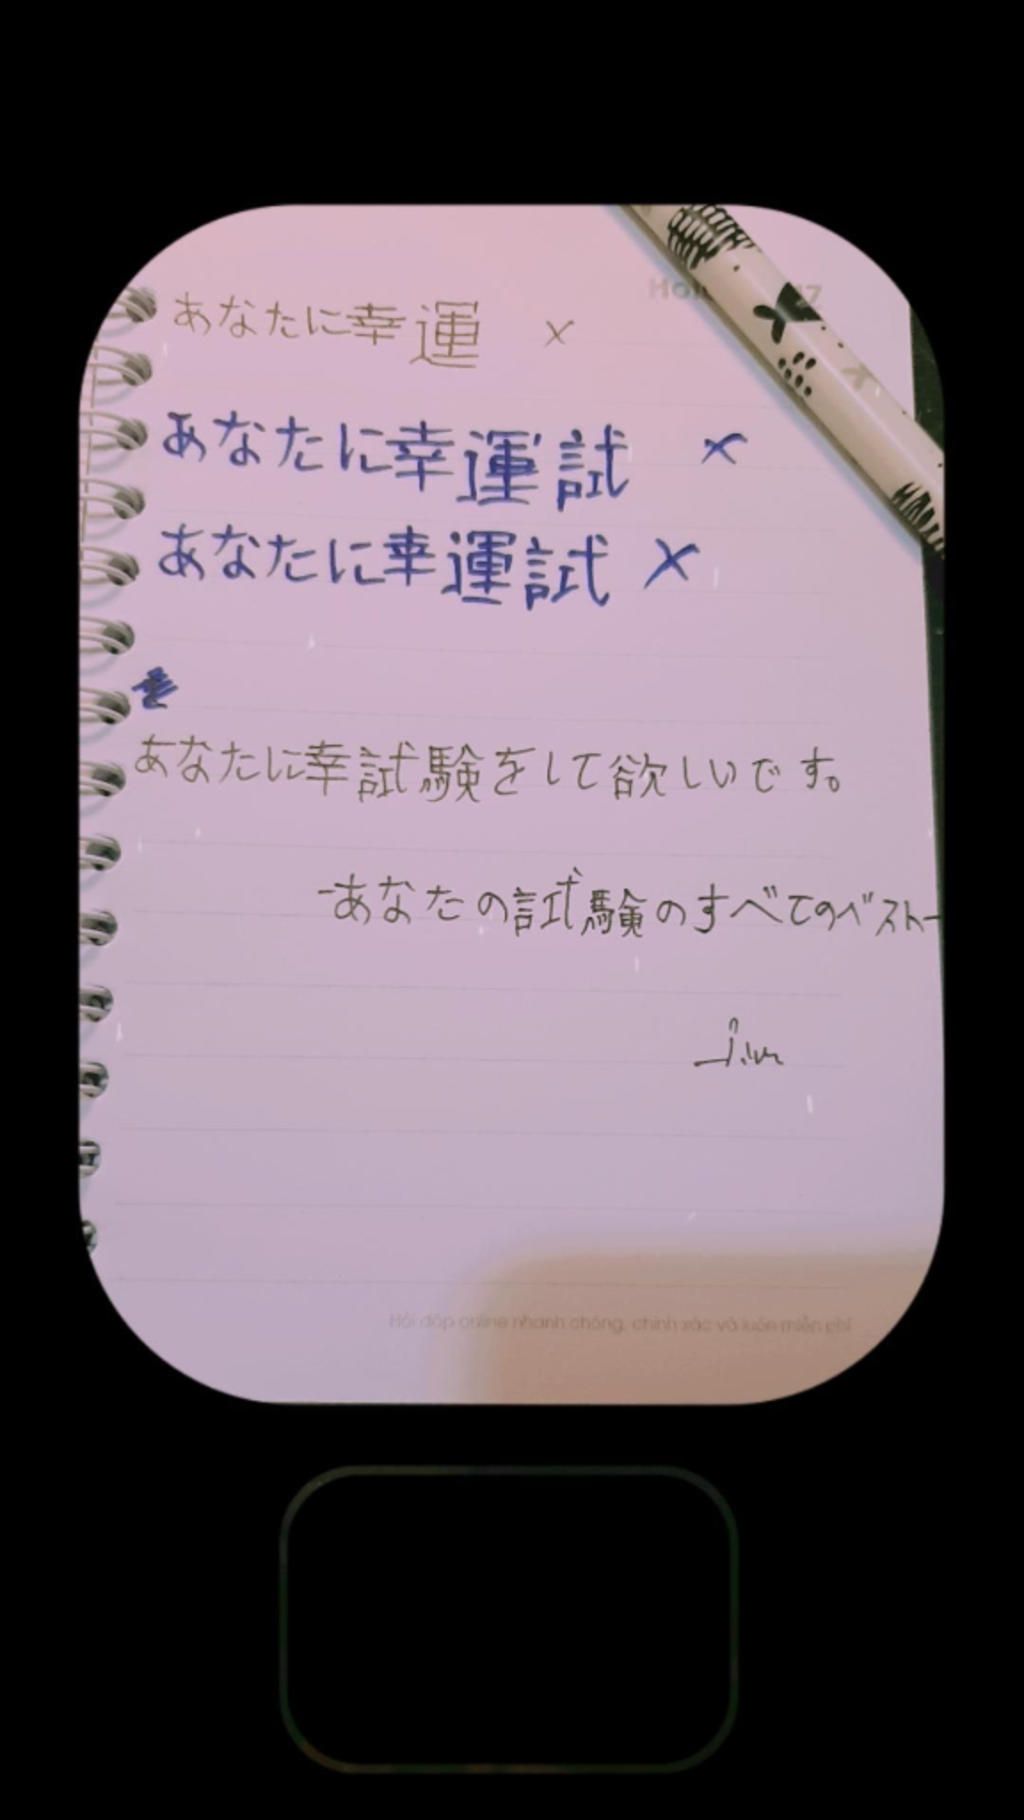 あなたに幸運 ×
あなたに幸運試 ×
あなたに幸運試 ×
あなたに幸試験をして欲しいです。
-あなたの試験のすべてのベスト-
Jim
Hỏi đáp online nhanh chóng, chính xác và luôn miễn phí